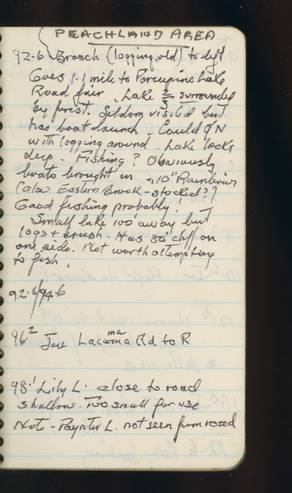 PEACHLAND AREA
92.6 Branch (logging, old) to left
Goes 1.1 mile to Porcupine Lake
Road fair. Lake 2/3 surrounded
by forest. Seldom visited but
has boat launch. Could ON
with logging around. Lake looks
deep. Fishing? Obviously
boats brought in 10" Rainbows
(also Eastern Brook - stocked?)
Good fishing probably!
Small lake 100' away but
logs + brush. Has 80' cliff on
one side. Not worth attempting
to fish
92.6/94.6
96.2 Jct Lacoma Rd to R
98.1 Lily L. close to road
shallow. Too small for use
Note - Paynter L. not seen from road